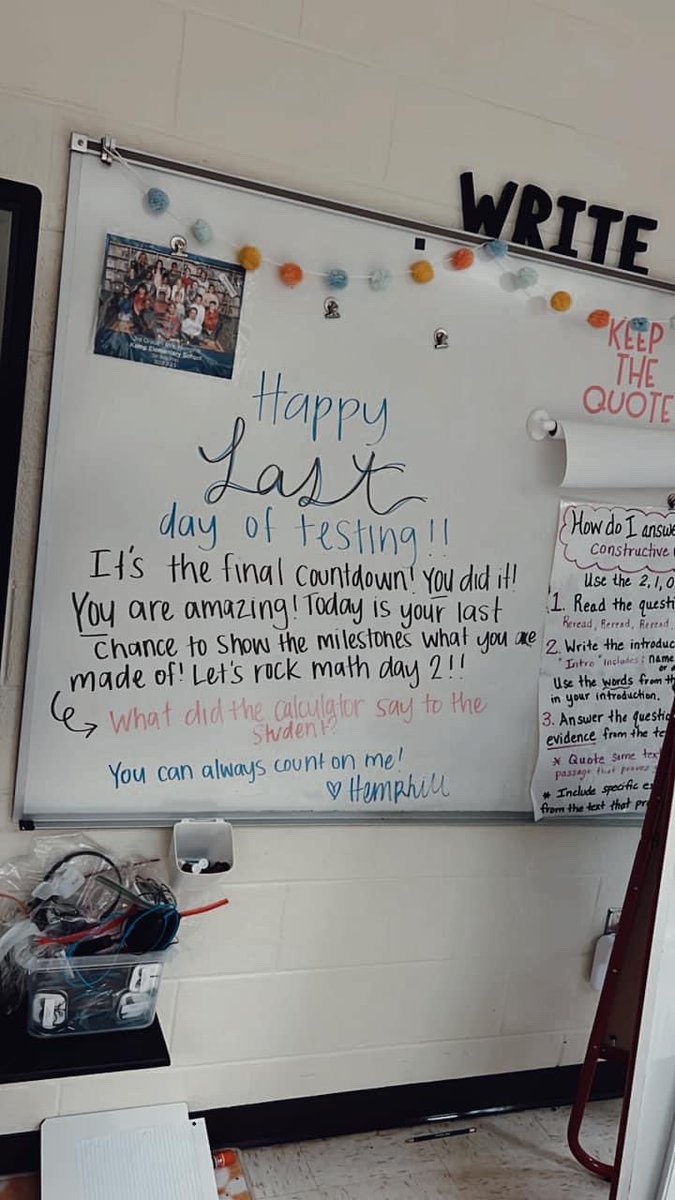 WRITE
KEEP
THE
QUOTE
Elementary School
Happy
Last
day of testing!!
It's the final countdown! You did it!
You are amazing! Today is your last
chance to show the milestones what you are
made of! Let's rock math day 2!!
What did the calculator say to the
student?
You can always count on me!
♡Hemphill
How do I answe
constructive
Use the 2, 1, 0
1. Read the questi
Reread, Reread, Reread,
2. Write the introduc
"Intro" includes: name
Use the words from th
in your introduction.
3. Answer the questio
evidence from the te
* Quote some tex
passage that proves
* Include specific e
from the text that pr